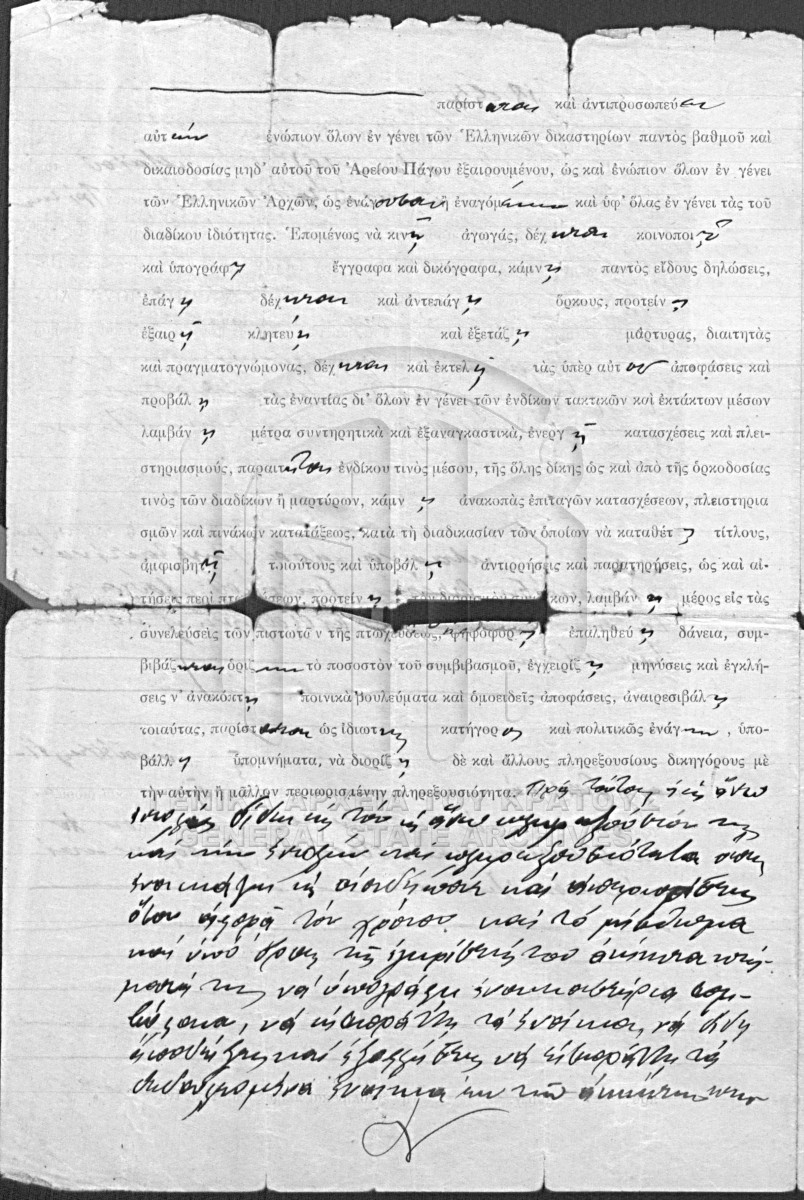 παρίσταται καὶ ἀντιπροσωπεύει
αὐτὴν ἐνώπιον ὅλων ἐν γένει τῶν Ἑλληνικῶν δικαστηρίων παντὸς βαθμοῦ καὶ
δικαιοδοσίας μηδ' αὐτοῦ τοῦ Ἀρείου Πάγου ἐξαιρουμένου, ὡς καὶ ἐνώπιον ὅλων ἐν γένει
τῶν Ἑλληνικῶν Ἀρχῶν, ὡς ἐνάγουσαν ἢ ἐναγομένην καὶ ὑφ' ὅλας ἐν γένει τὰς τοῦ
διαδίκου ἰδιότητας. Ἑπομένως νὰ κινῇ ἀγωγάς, δέχηται κοινοποιῇ
καὶ ὑπογράφῃ ἔγγραφα καὶ δικόγραφα, κάμνῃ παντὸς εἴδους δηλώσεις,
ἐπάγῃ δέχηται καὶ ἀντεπάγῃ ὅρκους, προτείνῃ
ἐξαιρῇ κλητεύῃ καὶ ἐξετάζῃ μάρτυρας, διαιτητὰς
καὶ πραγματογνώμονας, δέχηται καὶ ἐκτελῇ τὰς ὑπὲρ αὐτοῦ ἀποφάσεις καὶ
προβάλῃ τὰς ἐναντίας δι' ὅλων ἐν γένει τῶν ἐνδίκων τακτικῶν καὶ ἐκτάκτων μέσων
λαμβάνῃ μέτρα συντηρητικὰ καὶ ἐξαναγκαστικά, ἐνεργῇ κατασχέσεις καὶ πλει-
στηριασμούς, παραιτῆται ἐνδίκου τινὸς μέσου, τῆς ὅλης δίκης ὡς καὶ ἀπὸ τῆς ὁρκοδοσίας
τινὸς τῶν διαδίκων ἢ μαρτύρων, κάμνῃ ἀνακοπὰς ἐπιταγῶν κατασχέσεων, πλειστηρια
σμῶν καὶ πινάκων κατατάξεως, κατὰ τὴ διαδικασίαν τῶν ὁποίων νὰ καταθέτῃ τίτλους,
ἀμφισβητῇ τοιούτους καὶ ὑποβάλῃ ἀντιρρήσεις καὶ παρατηρήσεις, ὡς καὶ αἰ-
τήσεις περὶ πτωχεύσεων, προτείνῃ τὸν διορισμὸν συνδίκων, λαμβάνῃ μέρος εἰς τὰς
συνελεύσεις τῶν πιστωτῶν τῆς πτωχεύσεως, ψηφοφορῇ ἐπαληθεύῃ δάνεια, συμ-
βιβάζηται ὁρίζῃ τὸ ποσοστὸν τοῦ συμβιβασμοῦ, ἐγχειρίζῃ μηνύσεις καὶ ἐγκλή-
σεις ν' ἀνακόπτῃ ποινικὰ βουλεύματα καὶ ὁμοειδεῖς ἀποφάσεις, ἀναιρεσιβάλῃ
τοιαύτας, παρίσταται ὡς ἰδιωτικῆς κατήγορος καὶ πολιτικῶς ἐνάγων, ὑπο-
βάλλῃ ὑπομνήματα, νὰ διορίζῃ δὲ καὶ ἄλλους πληρεξουσίους δικηγόρους μὲ
τὴν αὐτὴν ἢ μᾶλλον περιωρισμένην πληρεξουσιότητα. Πρὸς τούτοις ἡ ἄνω
δίδει εἰς τὸν ἄνω πληρεξούσιόν της
καὶ τὴν πληρεξουσιότητα ὅπως
ἐνοικιάζῃ καὶ
ὅσον ἀφορᾷ τὸν χρόνον καὶ τὸ μίσθωμα
καὶ ὑπὸ ὅρους τῆς ἐγκρίσεώς του ἀκίνητα κτή-
ματά της νὰ ὑπογράφῃ ἐνοικιαστήρια συμ-
βόλαια, νὰ εἰσπράττῃ τὰ ἐνοίκια, νὰ δίδῃ
ἀποδείξεις καὶ ἐξοφλήσεις νὰ εἰσπράττῃ τὰ
ἐνοίκια ἐκ τῶν ἀκινήτων
ΓΕΝΙΚΑ ΑΡΧΕΙΑ ΤΟΥ ΚΡΑΤΟΥΣ
GENERAL STATE ARCHIVES